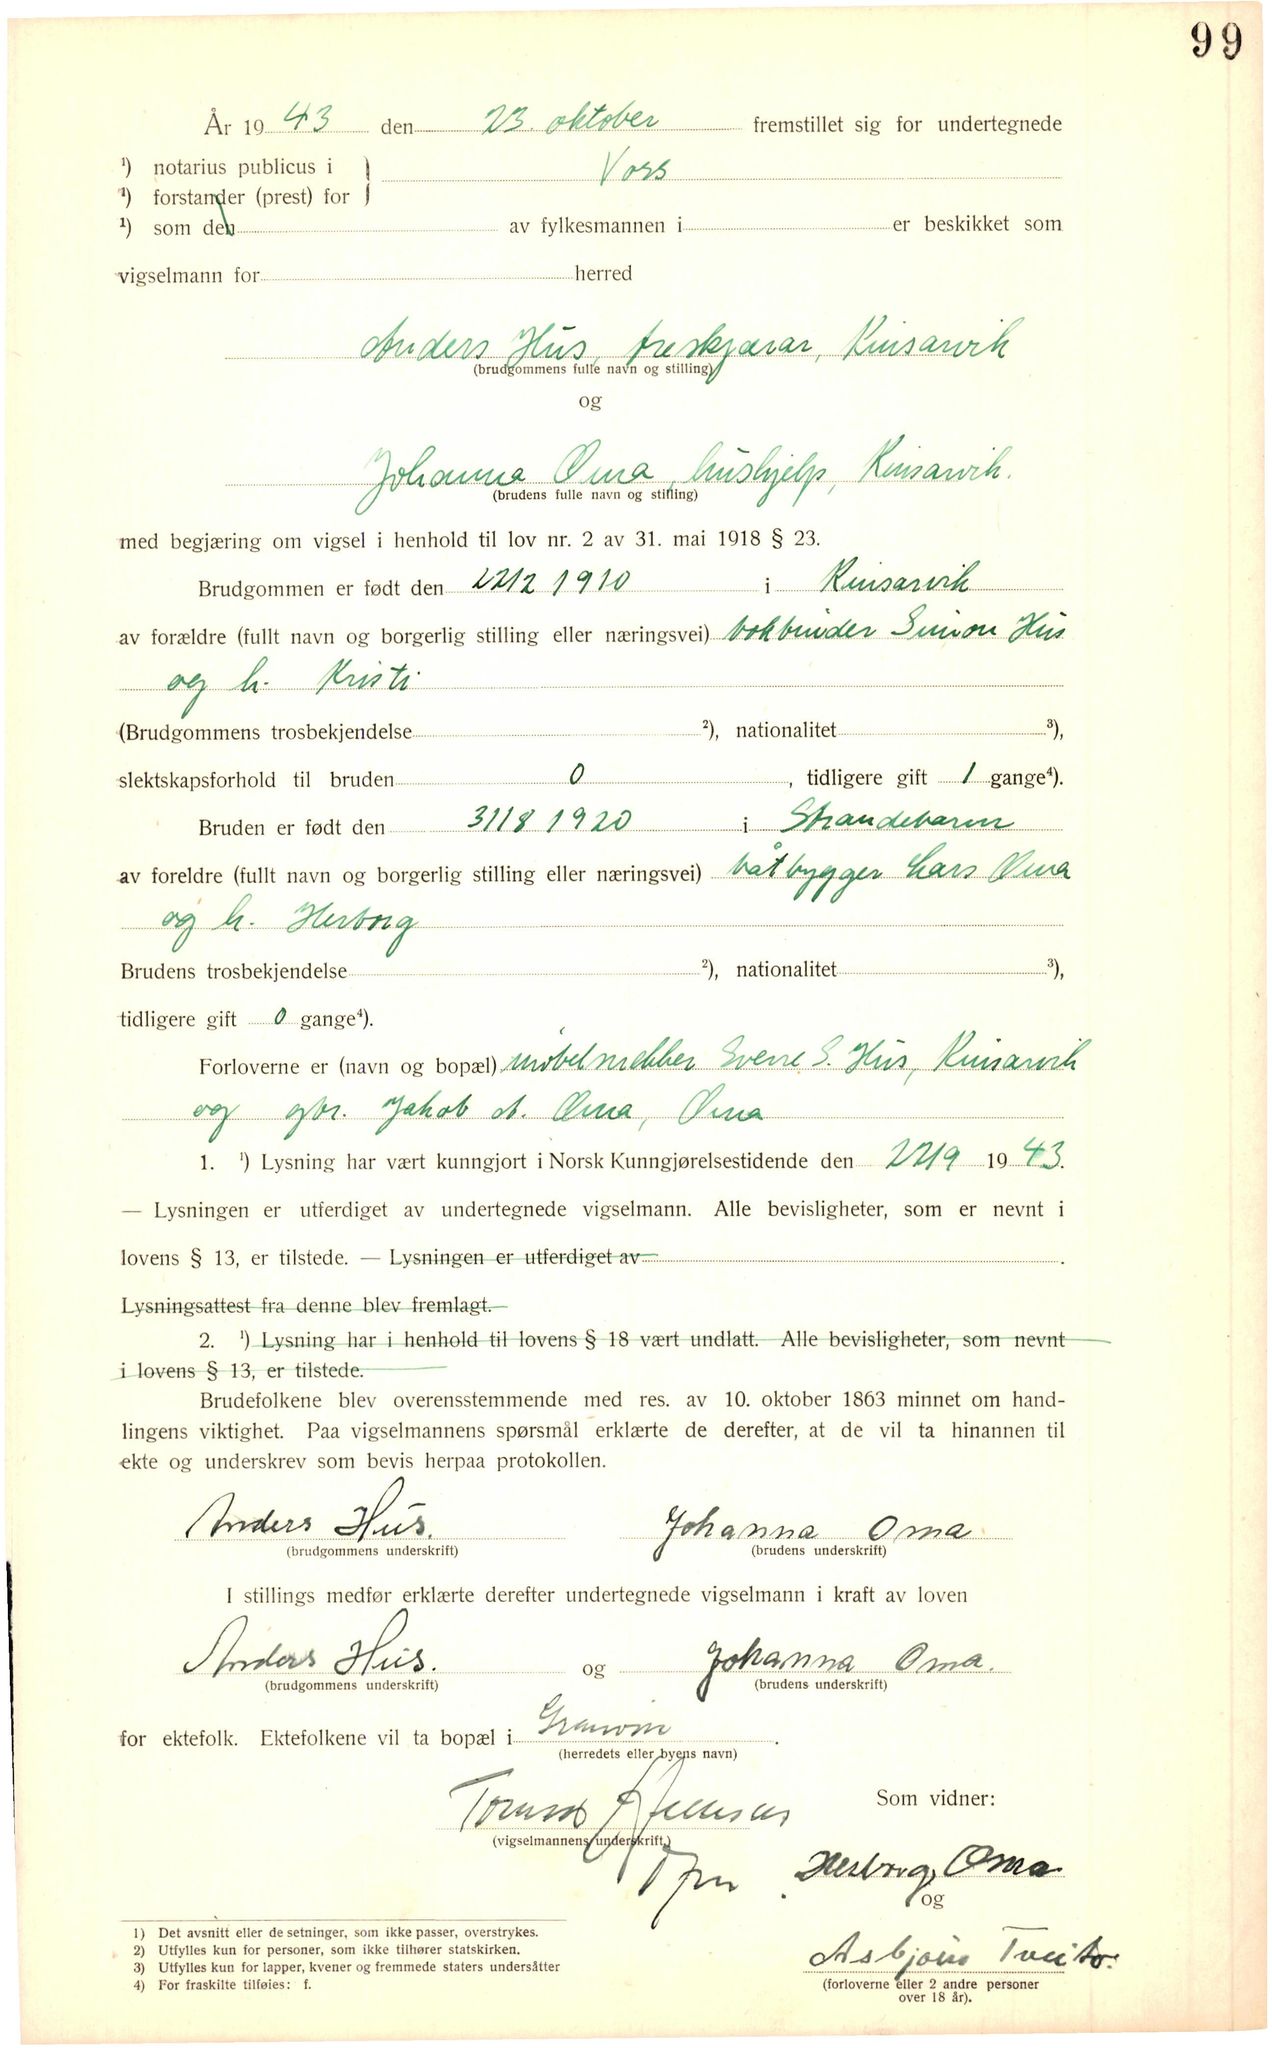 99
År 19 43 den 23. oktober fremstillet sig for undertegnede
1) notarius publicus i } Voss
1) forstander (prest) for }
1) som den av fylkesmannen i er beskikket som
vigselmann for herred
Anders Hus, treskjærar, Kinsarvik
(brudgommens fulle navn og stilling)
og
Johanna Oma, hushjelp, Kinsarvik.
(brudens fulle navn og stilling)
med begjæring om vigsel i henhold til lov nr. 2 av 31. mai 1918 § 23.
Brudgommen er født den 22/2 1910 i Kinsarvik
av forældre (fullt navn og borgerlig stilling eller næringsvei) bokbinder Simon Hus
og h. Kristi
(Brudgommens trosbekjendelse 2), nationalitet 3),
slektskapsforhold til bruden 0, tidligere gift 1 gange4).
Bruden er født den 31/8 1920 i Strandebarm
av foreldre (fullt navn og borgerlig stilling eller næringsvei) båtbygger Lars Oma
og h. Herborg
Brudens trosbekjendelse 2), nationalitet 3),
tidligere gift 0 gange4).
Forloverne er (navn og bopæl) møbelsnekker Sverre S. Hus, Kinsarvik
og gbr. Jakob A. Oma, Oma
1. 1) Lysning har vært kunngjort i Norsk Kunngjørelsestidende den 22/9 19 43.
— Lysningen er utferdiget av undertegnede vigselmann. Alle bevisligheter, som er nevnt i
lovens § 13, er tilstede. — Lysningen er utferdiget av .
Lysningsattest fra denne blev fremlagt.
2. 1) Lysning har i henhold til lovens § 18 vært undlatt. Alle bevisligheter, som nevnt
i lovens § 13, er tilstede.
Brudefolkene blev overensstemmende med res. av 10. oktober 1863 minnet om hand-
lingens viktighet. Paa vigselmannens spørsmål erklærte de derefter, at de vil ta hinannen til
ekte og underskrev som bevis herpaa protokollen.
Anders Hus. Johanna Oma
(brudgommens underskrift) (brudens underskrift)
I stillings medfør erklærte derefter undertegnede vigselmann i kraft av loven
Anders Hus. og Johanna Oma.
(brudgommens underskrift) (brudens underskrift)
for ektefolk. Ektefolkene vil ta bopæl i Granvin.
(herredets eller byens navn)
Som vidner:
(vigselmannens underskrift)
Herborg Oma
og
1) Det avsnitt eller de setninger, som ikke passer, overstrykes.
2) Utfylles kun for personer, som ikke tilhører statskirken.
3) Utfylles kun for lapper, kvener og fremmede staters undersåtter
4) For fraskilte tilføies: f.
Asbjørn Tveito.
(forloverne eller 2 andre personer
over 18 år).